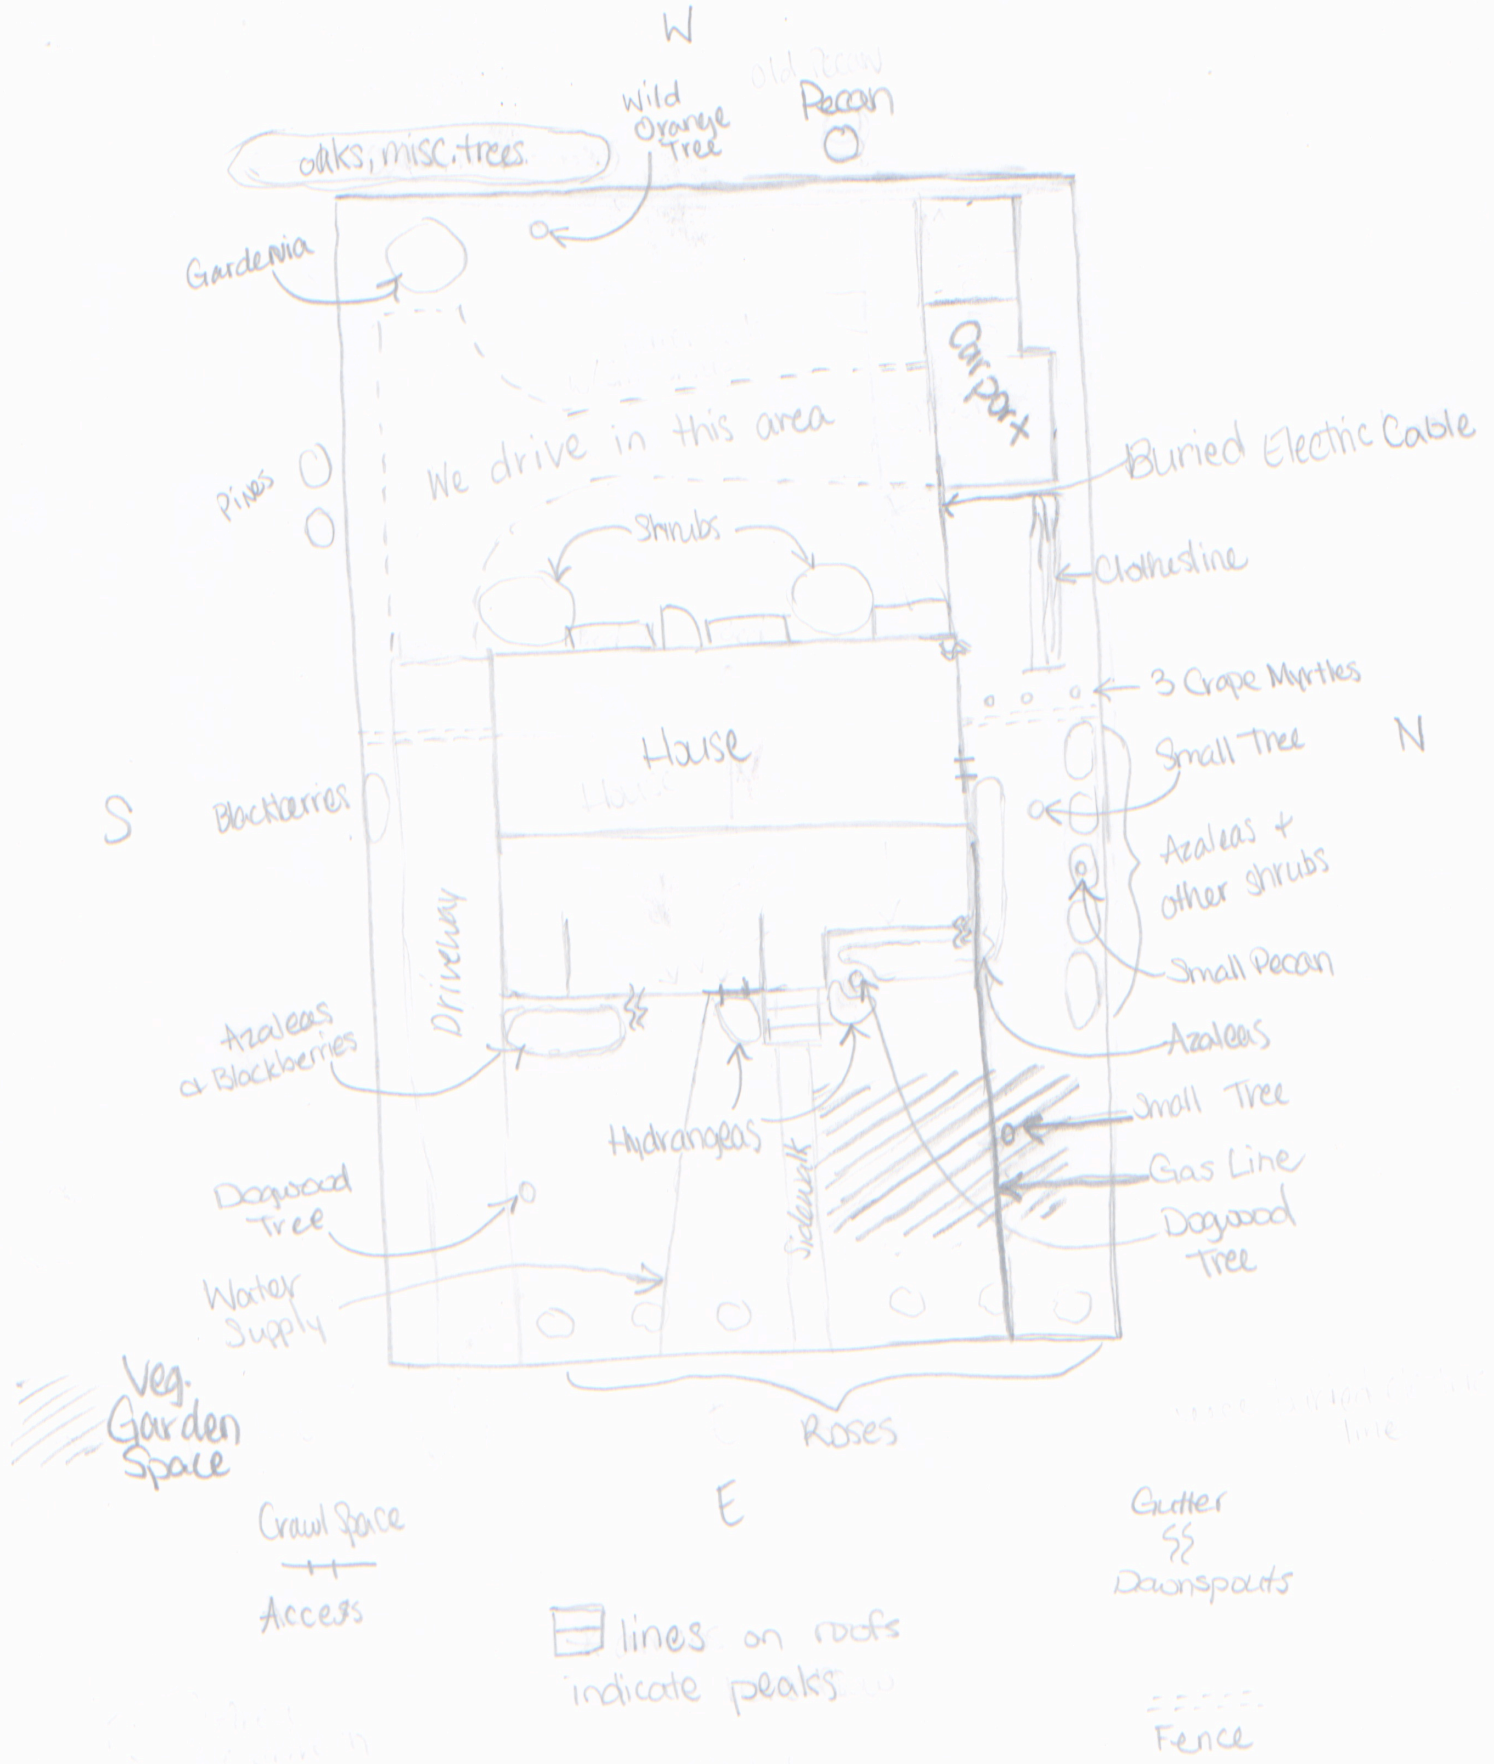 W
Wild
Orange
Tree
old Pecan
Pecan
oaks, misc. trees
Gardenia
Carport
We drive in this area
Buried Electric Cable
Pines
Shrubs
Clothesline
3 Crape Myrtles
House
Small Tree
N
S
Blackberries
Azaleas +
other shrubs
Driveway
Small Pecan
Azaleas
& Blackberries
Azaleas
Hydrangeas
Small Tree
Sidewalk
Gas Line
Dogwood
Tree
Dogwood
Tree
Water
Supply
Veg.
Garden
Space
Roses
line
E
Crawl Space
Access
Gutter
Downspouts
lines on roofs
indicate peaks
Fence